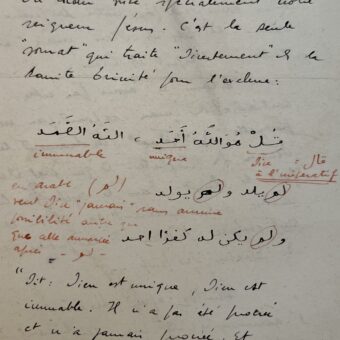 spécialement notre
seigneur Jésus. C'est la seule
"sourat" qui traite "directement" de la
Sainte Trinité pour l'exclure:
قُلْ هُوَ اللَّهُ أَحَد ، اللَّهُ الصَّمَد
immuable unique Dire قال
à l'impératif
لم يلد ولم يولد
en arabe (لم)
veut dire "jamais" sans aucune
possibilité autre que
que celle annoncée
après - لم -
ولم يكن له كفوا احد
"Dit: Dieu est unique, Dieu est
immuable. Il n'a pas été procréé
et n'a jamais procréé. Et